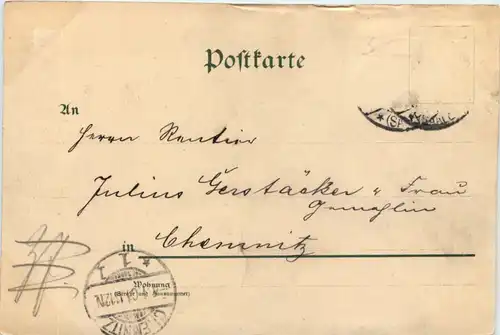 Postkarte
An
Herrn Rentier
Julius Gerstäcker u Frau
Gemahlin
in Chemnitz
Wohnung
(Straße und Hausnummer)
CHEMNITZ